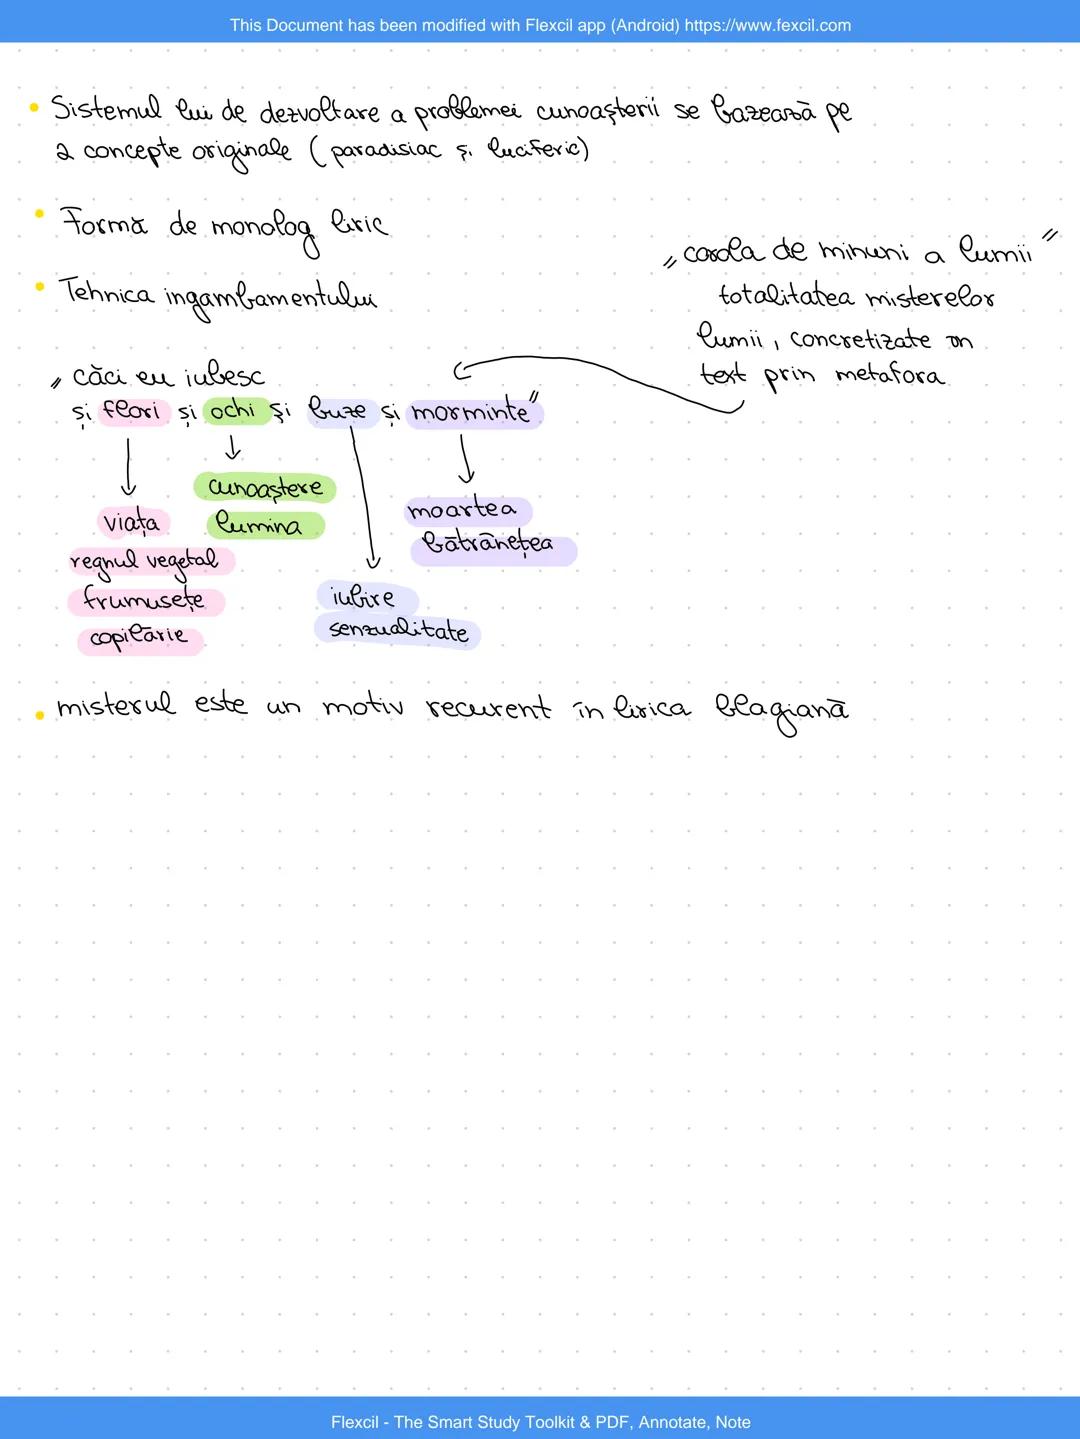 This Document has been modified with Flexcil app (Android) https://www.fexcil.com
• Sistemul lui de dezvoltare a problemei cunoașterii se bazează pe
2 concepte originale (paradisiac și luciferic)
• Formă de monolog liric
• Tehnica ingambamentului
„corola de minuni a lumii"
totalitatea misterelor
lumii, concretizate în
text prin metafora
„căci eu iubesc
și flori și ochi și buze și morminte"
cunoaștere
lumina
viața
regnul vegetal
frumusețe
copilărie
iubire
senzualitate
moartea
bătrânețea
• misterul este un motiv recurent în lirica blagiană
Flexcil - The Smart Study Toolkit & PDF, Annotate, Note